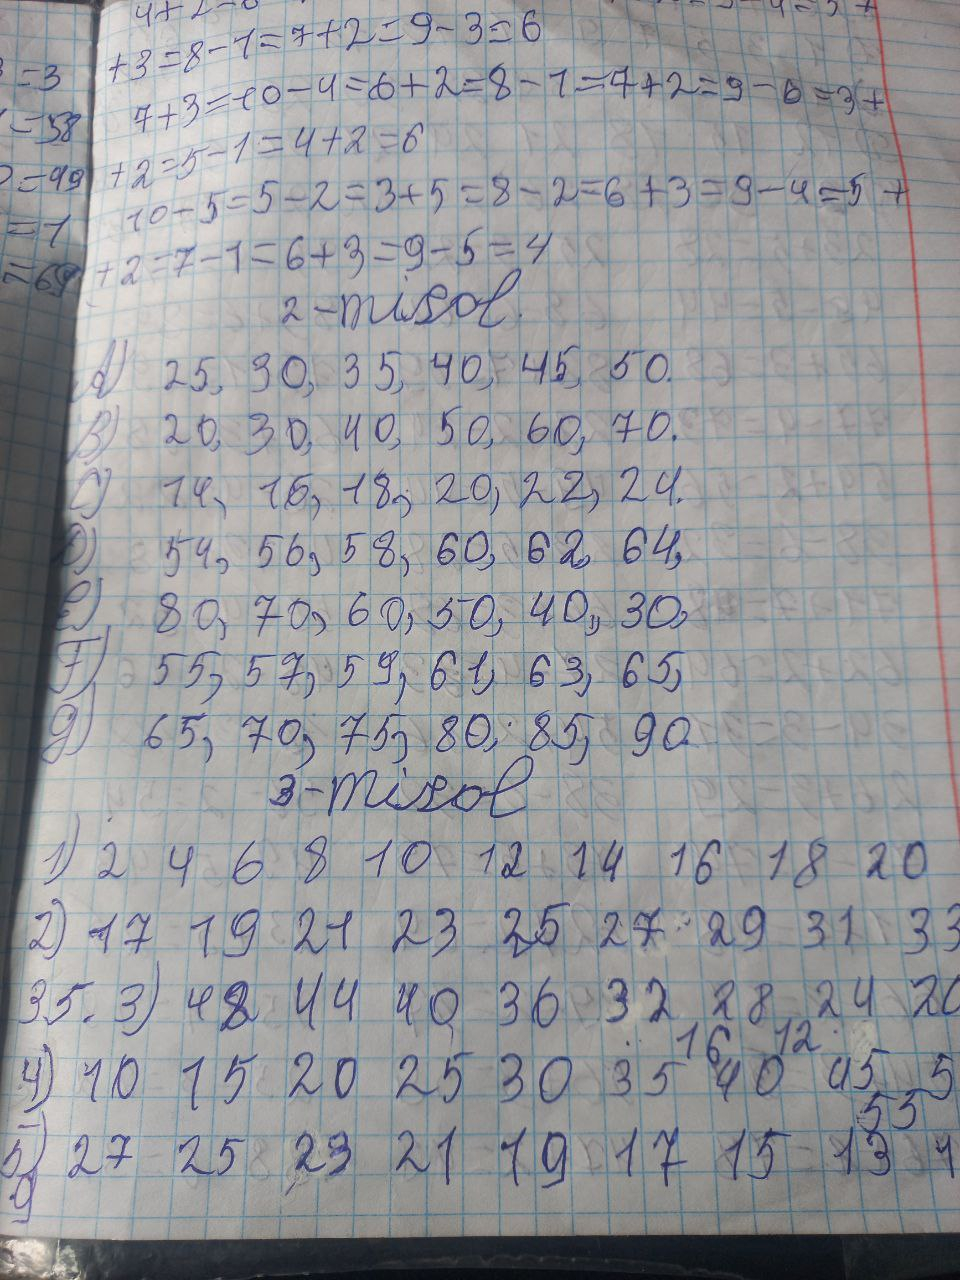 +3=8-1=7+2=9-3=6
7+3=10-4=6+2=8-1=7+2=9-6=3+
+2=5-1=4+2=6
10-5=5-2=3+5=8-2=6+3=9-4=5+
+2=7-1=6+3=9-5=4
2-misol.
A) 25, 30, 35, 40, 45, 50.
B) 20, 30, 40, 50, 60, 70.
C) 14, 16, 18, 20, 22, 24.
D) 54, 56, 58, 60, 62, 64,
e) 80, 70, 60, 50, 40, 30,
F) 55, 57, 59, 61, 63, 65,
g) 65, 70, 75, 80, 85, 90
3-misol
1) 2 4 6 8 10 12 14 16 18 20
2) 17 19 21 23 25 27 29 31 33
35. 3) 48 44 40 36 32 28 24 20
16 12
4) 10 15 20 25 30 35 40 45 5
55
5) 27 25 23 21 19 17 15 13 1
9
=3
=58
=49
=1
=69